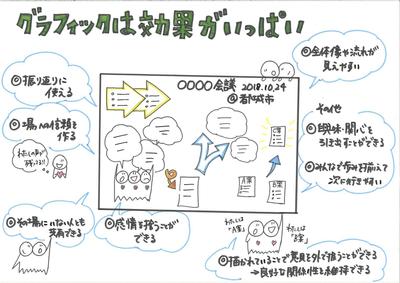 グラフィックは効果がいっぱい
◎全体像や流れが
見えやすい
◎振り返りに
使える
〇〇〇〇会議 2018.10.24
@都城市
◎場への信頼を
作る
わたしの声が
残ってる!!
その他
◎興味・関心を
引き出すことができる
◎みんなで歩みを揃えて
次に行きやすい
A案
B案
◎その場にいない人とも
共有できる
◎感情を拾うことが
できる
わたしは
「A案」
わたしは
「B案」
◎描かれていることで意見を外で拾うことができる
→良好な関係性を維持できる